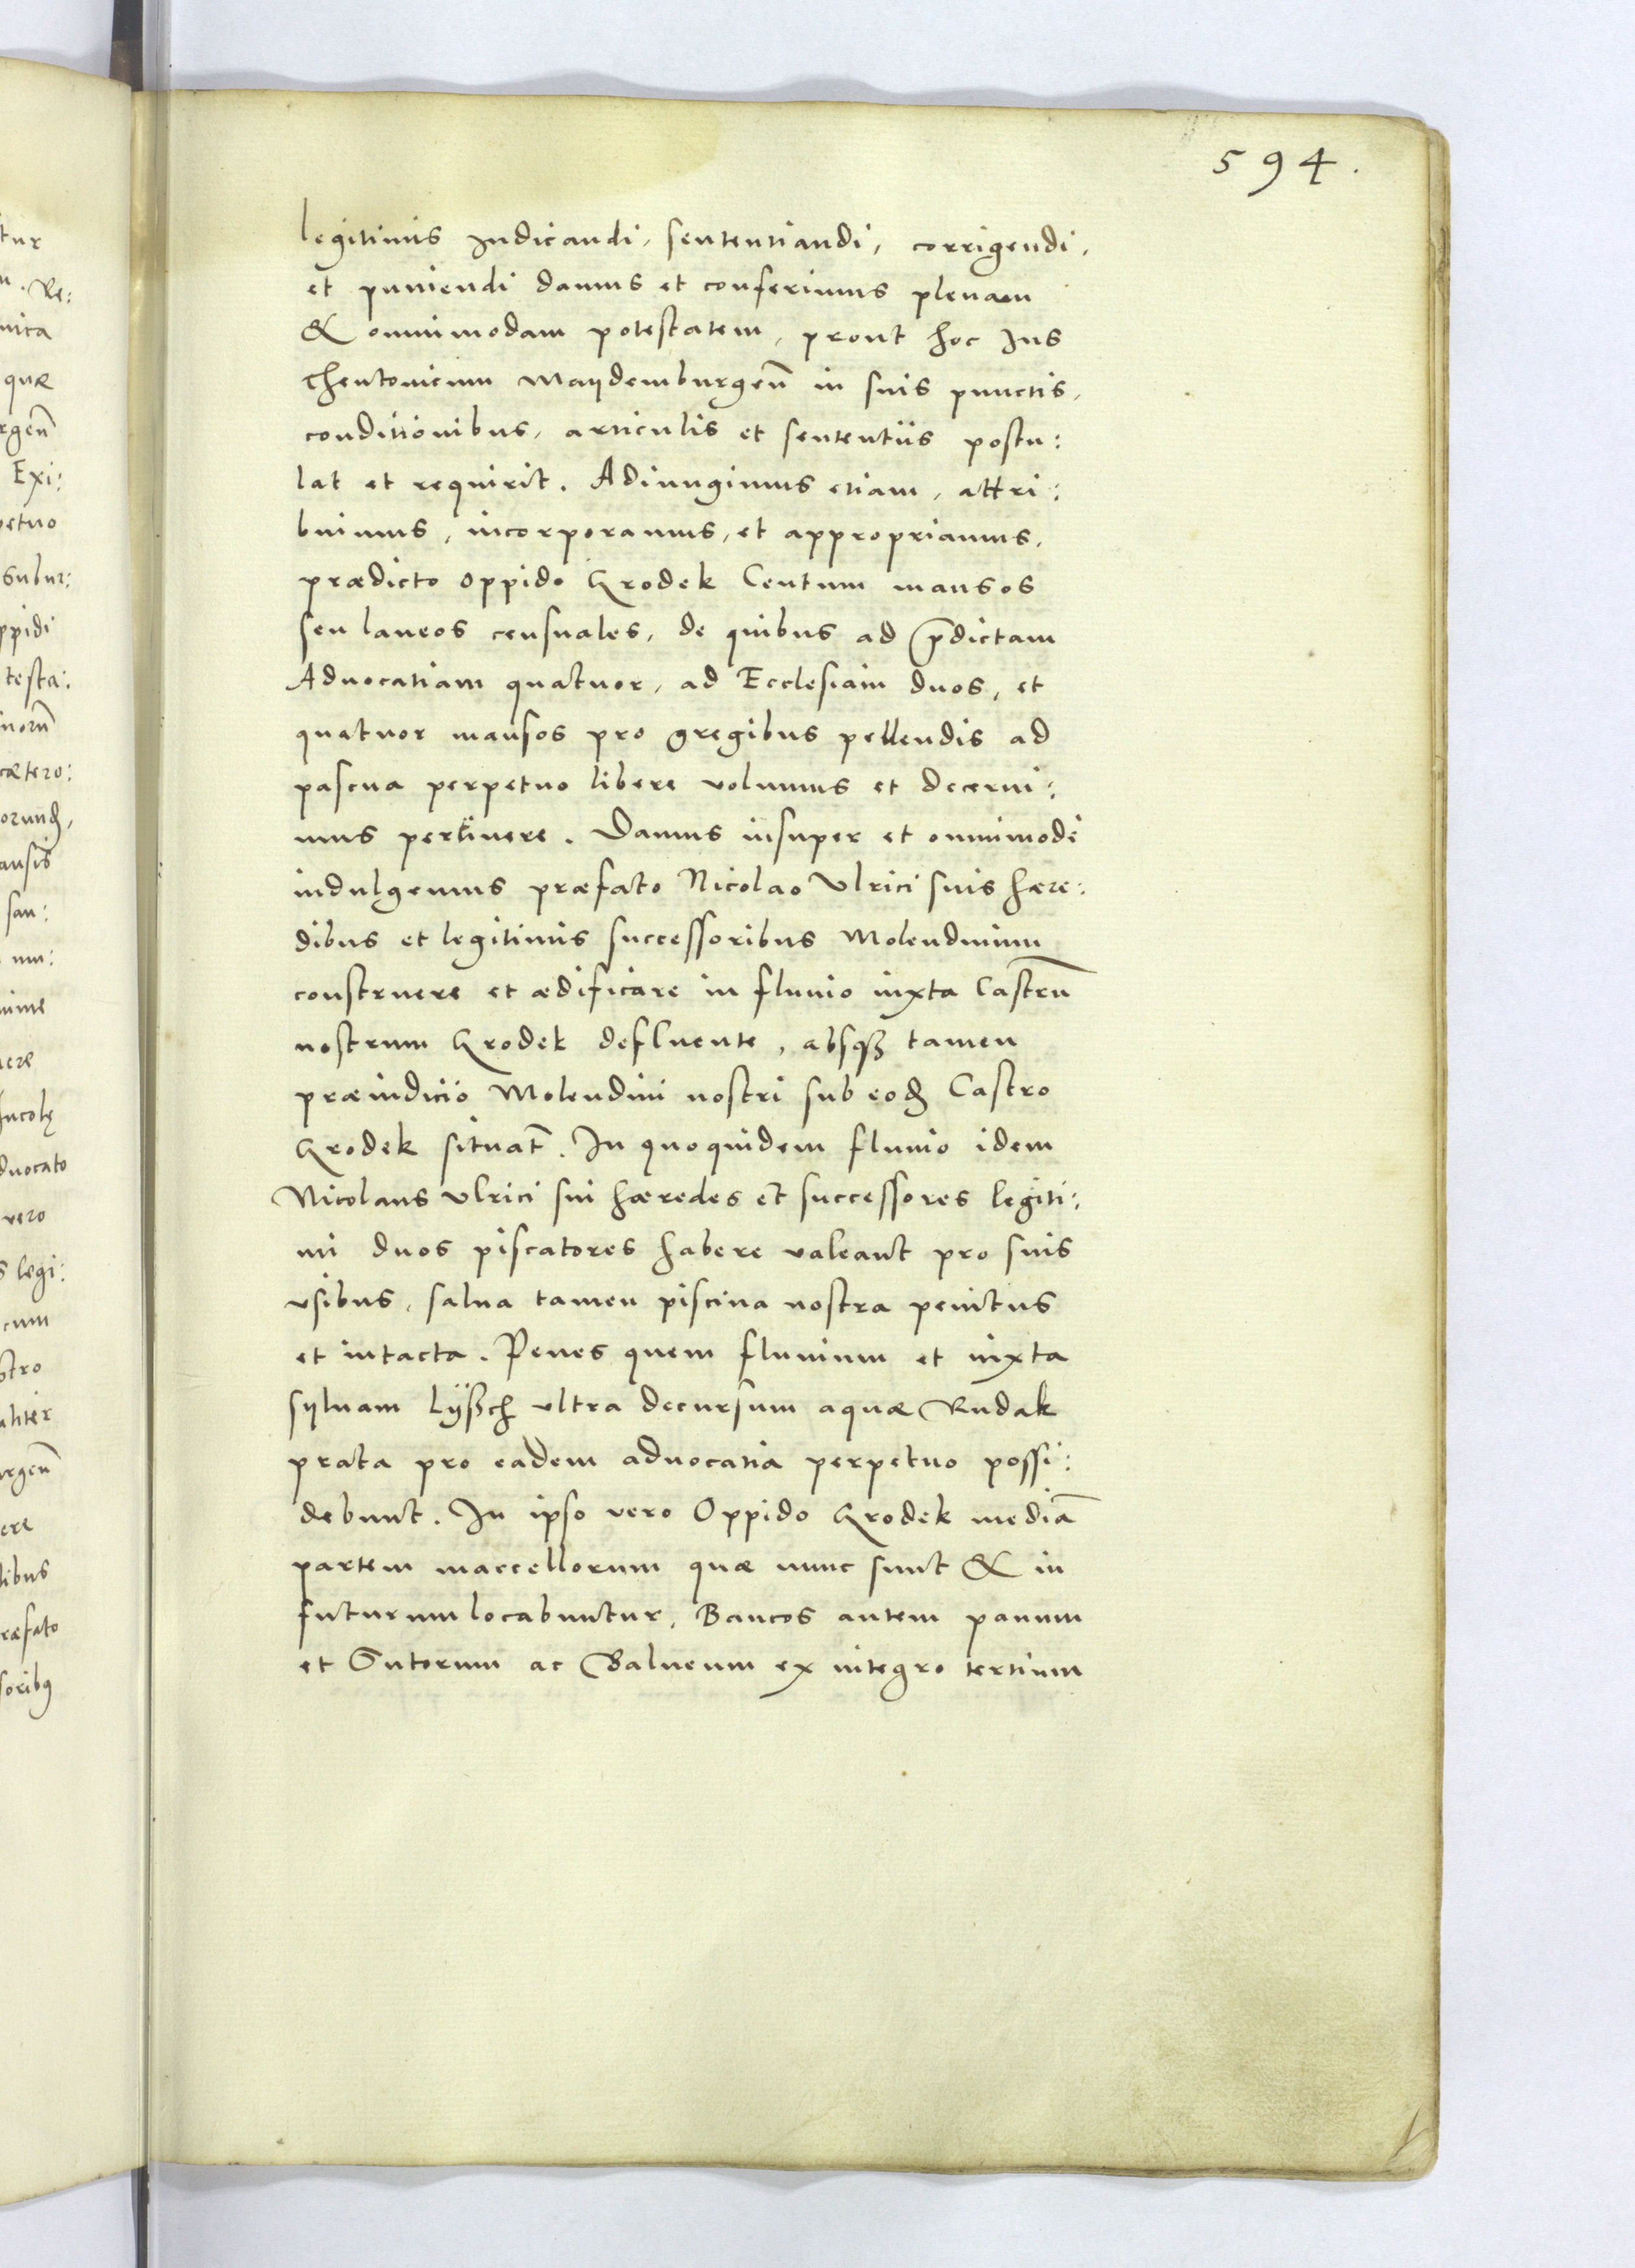 594.
legitimis Iudicandi, sententiandi, corrigendi,
et puniendi damus et conferimus plenam
& omnimodam potestatem, prout hoc Ius
Theutonicum Maydemburgeñ in suis punctis,
conditionibus, articulis et sententiis postu:
lat et requirit. Adiungimus etiam, attri:
buimus, incorporamus, et appropriamus,
prædicto oppido Grodek Centum mansos
seu laneos censuales, de quibus ad p̄dictam
Advocatiam quatuor, ad Ecclesiam duos, et
quatuor mansos pro gregibus pellendis ad
pascua perpetuo libere volumus et decerni:
mus pertinere. Damus insuper et omnimode
indulgemus præfato Nicolao Vlrici suis hære:
dibus et legitimis successoribus Molendinum
construere et ædificare in fluvio iuxta Castrū
nostrum Grodek defluente, absqꝫ tamen
præiudicio Molendini nostri sub eod Castro
Grodek situat̄. In quoquidem fluvio idem
Nicolaus Vlrici sui hæredes et successores legiti:
mi duos piscatores habere valeant pro suis
vsibus, salua tamen piscina nostra penitus
et intacta. Penes quem fluuium et iuxta
syluam Lÿßch ultra decursum aquæ Rudak
prata pro eadem aduocatia perpetuo possi:
debunt. In ipso vero Oppido Grodek mediā
partem maccellorum quæ nunc sunt & in
futurum locabuntur, Bancos autem panum
et Sutorum ac Balneum ex integro tertium
tur
Re:
nica
quæ
rgeñ
Exi:
petuo
Subur:
ppidi
testa:
cætero:
ansis
san:
nime
ere
Incolę
duocato
vero
s legi:
cum
stro
aliter
urgeñ
ere
libus
ræfato
soribꝰ